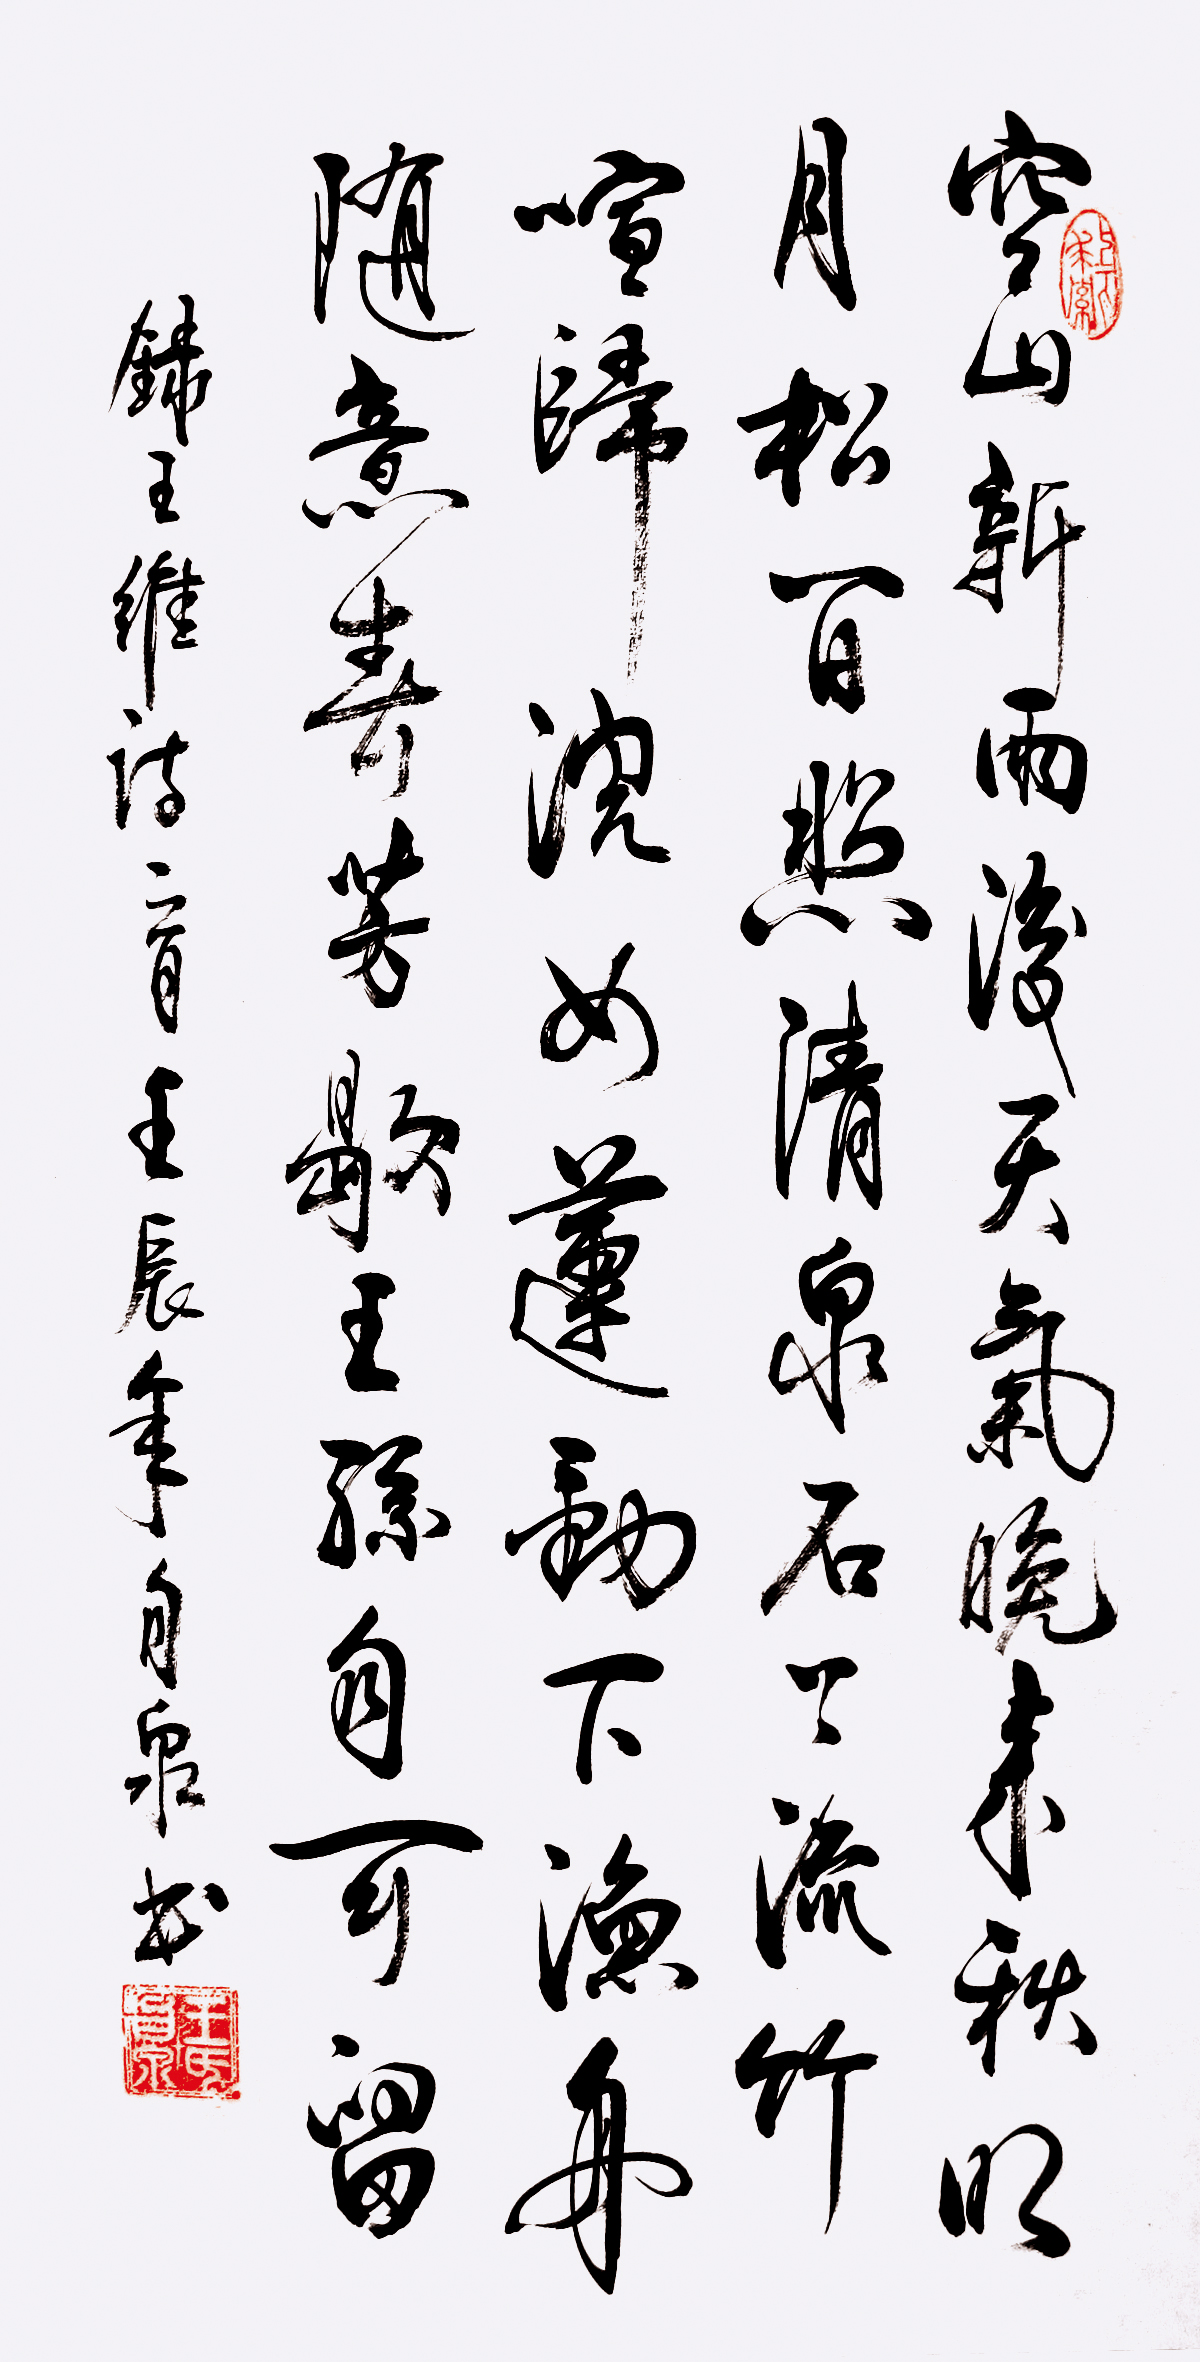 空山新雨後天氣晚来秋明
月松間照清泉石上流竹
喧歸浣女蓮動下漁舟
随意春芳歇王孫自可留
録王維詩一首壬辰年自泉书
王氏自泉